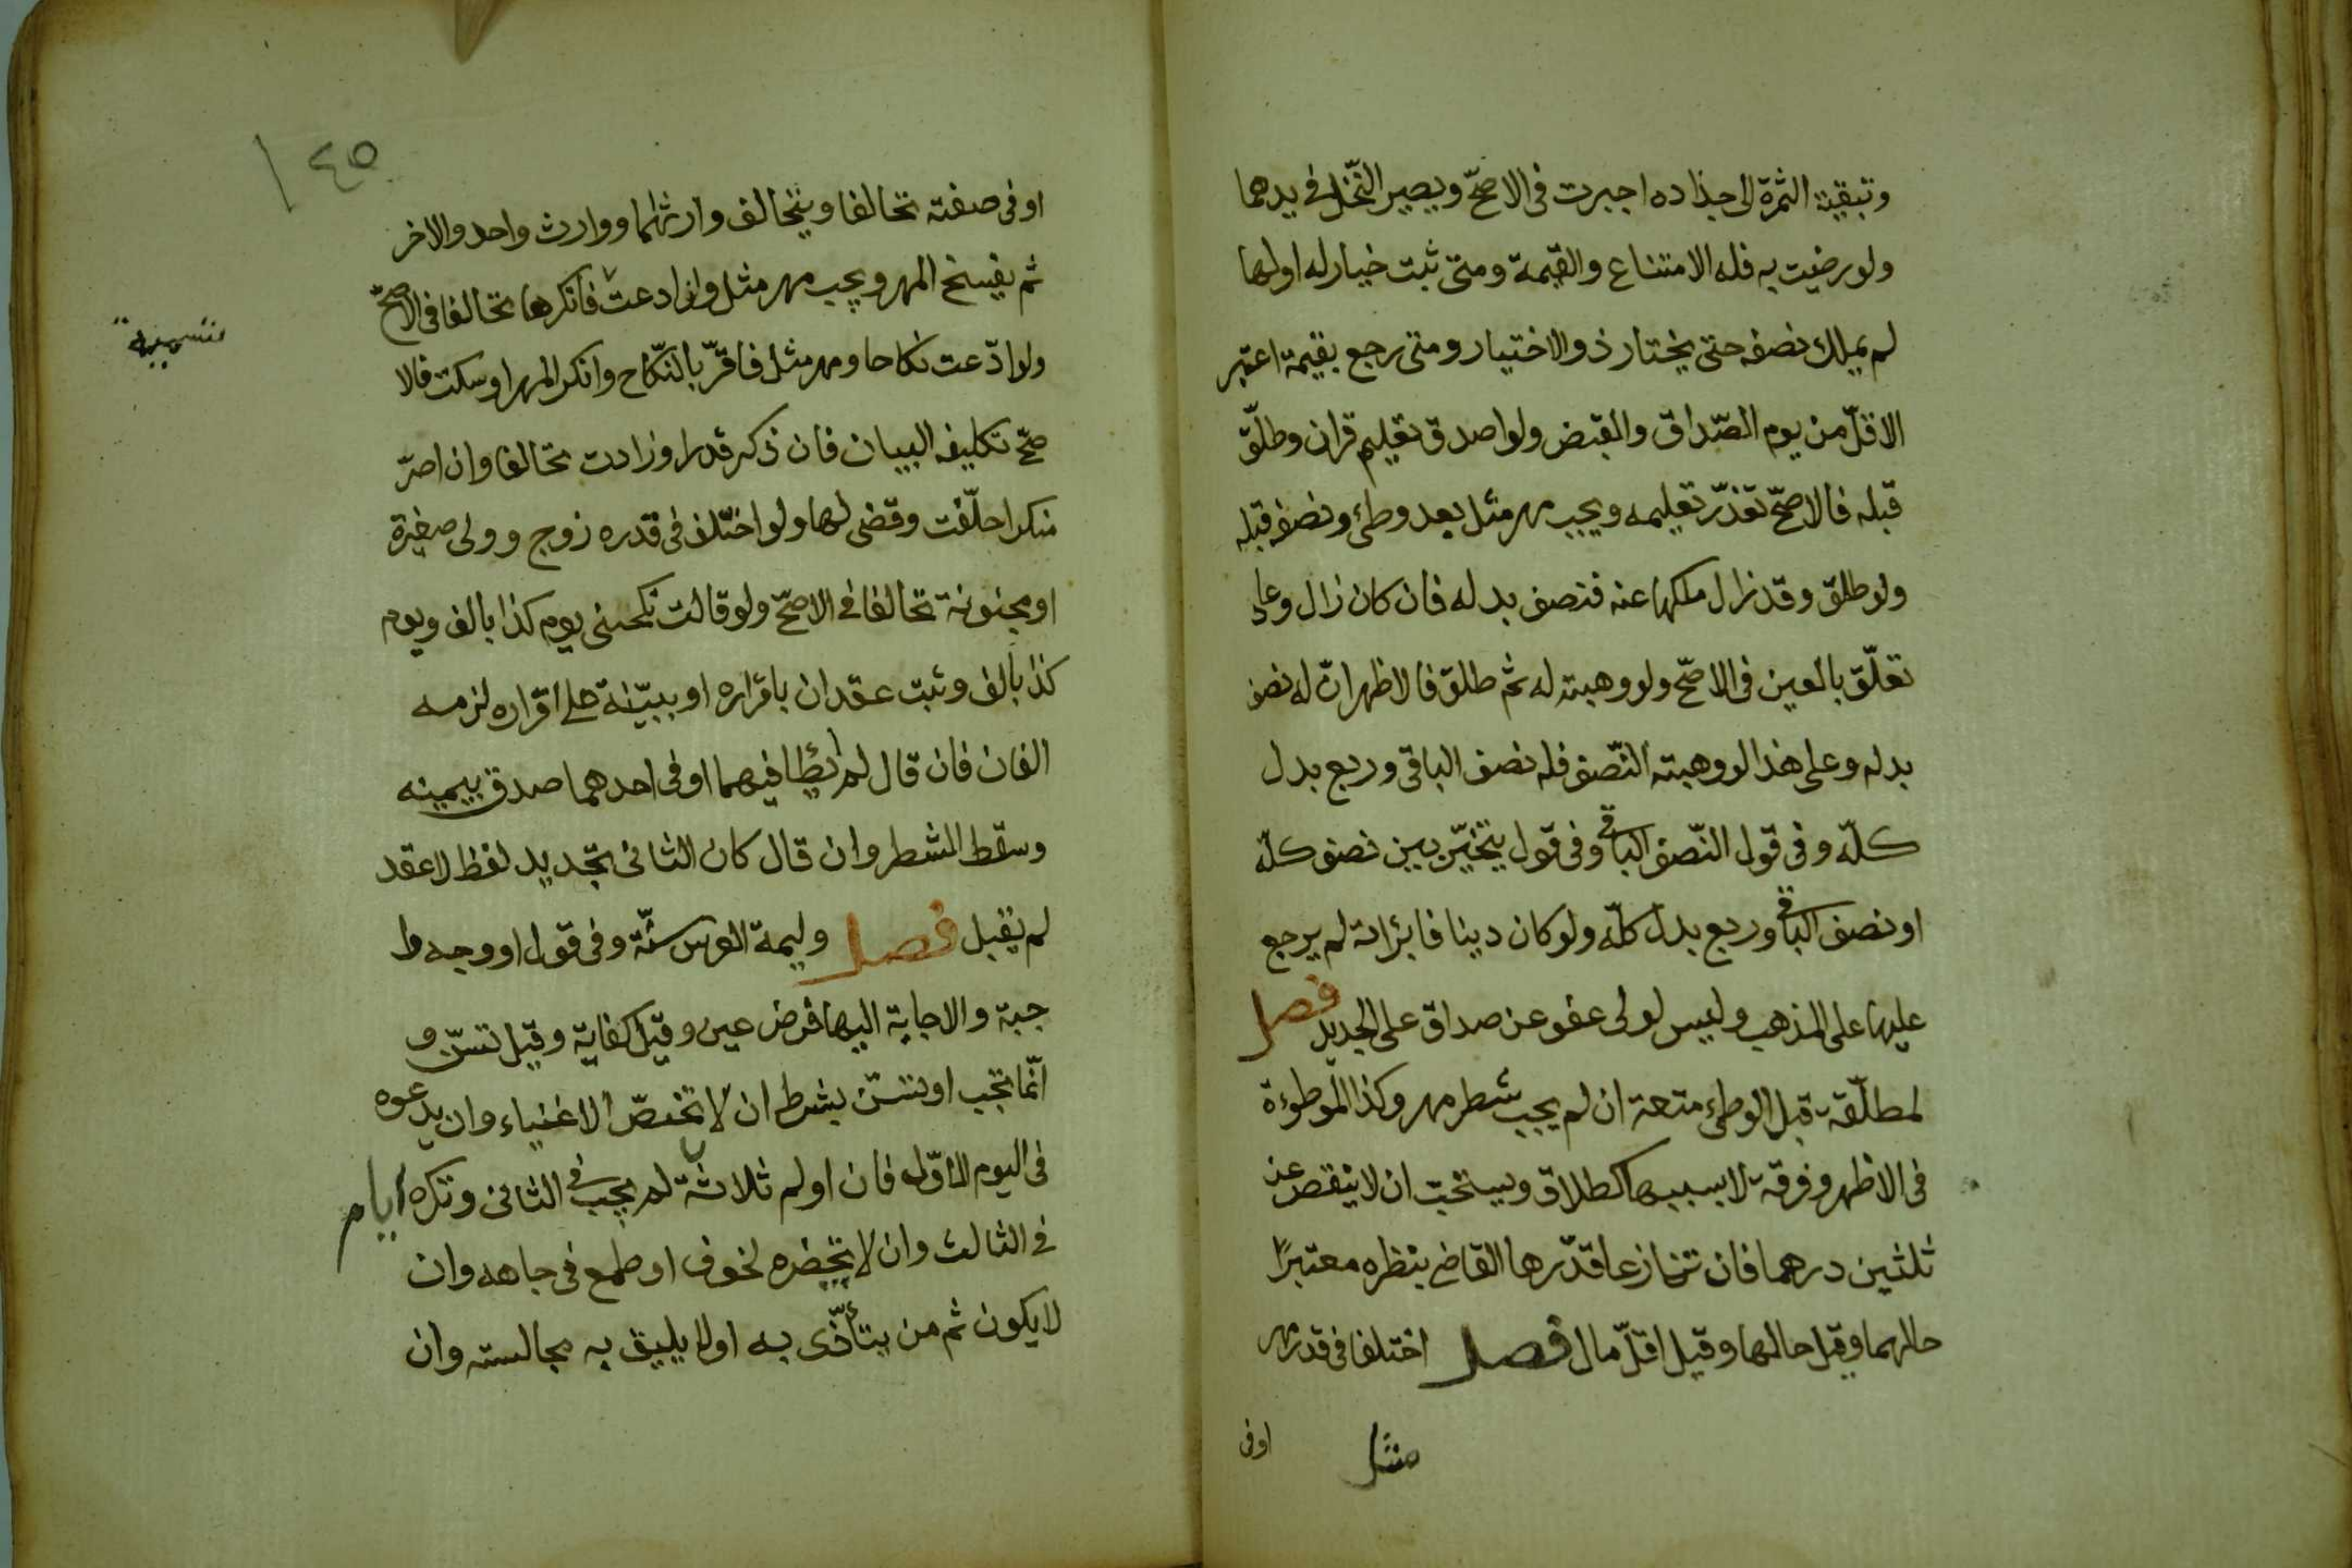 وتبقية الثمرة الى جذاده اجبرت فى الاصحّ ويصير النّخل فى يدهما
ولو رضيت به فله الامتناع والقيمة ومتى ثبت خيار له او لها
لم يملك نصفه حتى يختار ذو الاختيار ومتى رجع بقيمة اعتبر
الاقلّ من يوم الصّداق والقبض ولو اصدق تعليم قران وطلّق
قبله فالاصحّ تعذّر تعليمه ويجب مهر مثل بعد وطئ ونصفه قبله
ولو طلق وقد زال ملكها عنه فنصف بدله فان كان زال وعاد
تعلّق بالعين فى الاصحّ ولو وهبته له ثم طلق فالاظهر انّ له نصف
بدله وعلى هذا لو وهبته النّصف فله نصف الباقى وربع بدل
كلّه وفى قول النّصف الباقى وفى قول يتخيّر بين نصف كلّه
او نصف الباقى وربع بدل كلّه ولو كان دينا فابراته لم يرجع
عليها على المذهب وليس لولى عفو عن صداق على الجديد فصل
لمطلّقة قبل الوطئ متعة ان لم يجب شطر مهر وكذا الموطوءة
فى الاظهر وفرقة لا بسببها كطلاق ويستحب ان لا ينقص عن
ثلثين درهما فان تنازعا قدّرها القاضى بنظره معتبرًا
حالهما وقيل حالها وقيل اقلّ مال فصل اختلفا فى قدر مهر
مثل
اوفى
١٤٥
او فى صفته تحالفا ويتحالف وارثهما ووارث واحد والاخر
ثم يفسخ المهر ويجب مهر مثل ولو ادعت فانكرها تحالفا فى الاصحّ
تسمية
ولو ادّعت نكاحا ومهر مثل فاقرّ بالنّكاح وانكر المهر او سكت فالا
صحّ تكليفه البيان فان ذكر قدرا وزادت تحالفا وان اصرّ
منكرا حلّفت وقضى لها ولو اختلف فى قدره زوج وولى صغيرة
او مجنونة تحالفا فى الاصحّ ولو قالت نكحنى يوم كذا بالف ويوم
كذا بالف وثبت عقدان باقراره او ببيّنة على اقراره لزمه
الفان فان قال لم اطأ فيهما او فى احدهما صدق بيمينه
وسقط الشطر وان قال كان الثانى تجديد لفظ لا عقد
لم يقبل فصل وليمة العرس سنّة وفى قول او وجه وا
جبة والاجابة اليها فرض عين وقيل كفاية وقيل تسنّ و
انّما تجب او تسنّ بشرط ان لا تخصّ الاغنياء وان يدعوه
فى اليوم الاوّل فان اولم ثلاثة لم يجب فى الثانى وتكره ايام
فى الثالث وان لا يحضره لخوف او طمع فى جاهه وان
لا يكون ثم من يتأذّى به او لا يليق به مجالسته وان